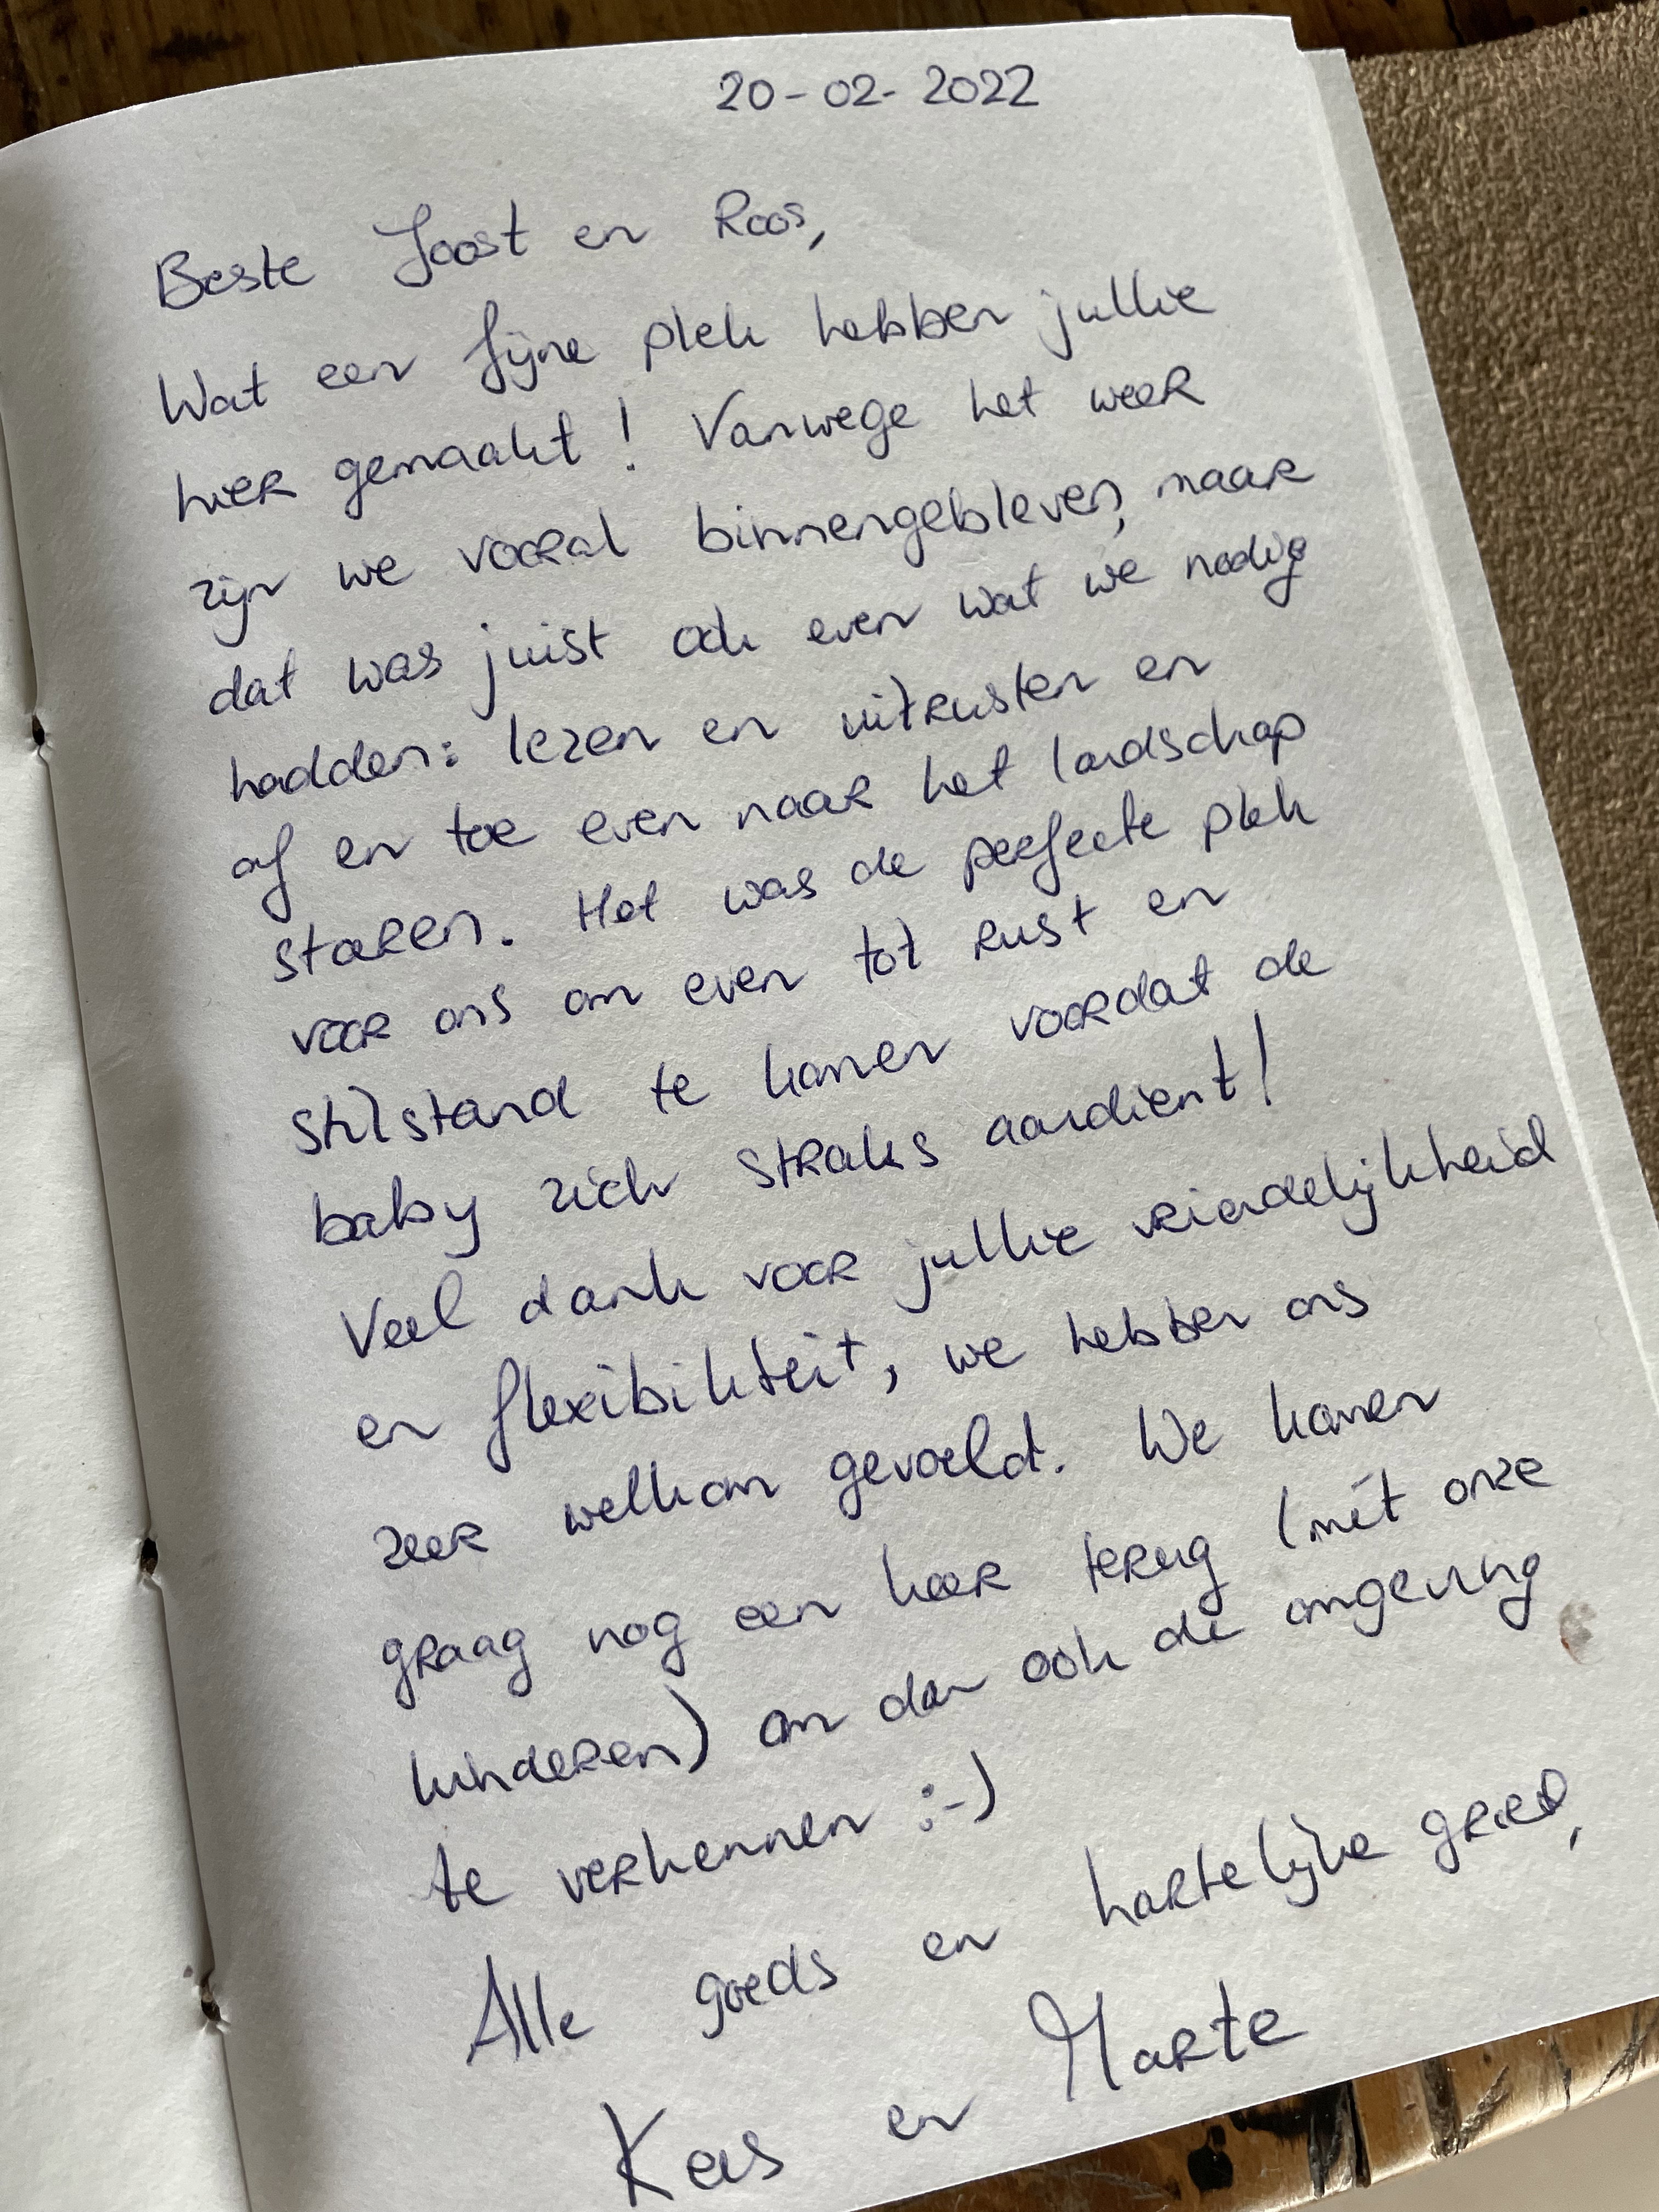 20-02-2022
Beste Joost en Roos,
Wat een fijne plek hebben jullie
hier gemaakt! Vanwege het weer
zijn we vooral binnengebleven, maar
dat was juist ook even wat we nodig
hadden: lezen en uitrusten en
af en toe even naar het landschap
staren. Het was de perfecte plek
voor ons om even tot rust en
stilstand te komen voordat de
baby zich straks aandient!
Veel dank voor jullie vriendelijkheid
en flexibiliteit, we hebben ons
zeer welkom gevoeld. We komen
graag nog een keer terug (mét onze
kinderen) om dan ook de omgeving
te verkennen :-)
Alle goeds en hartelijke groet,
Kees en Marte